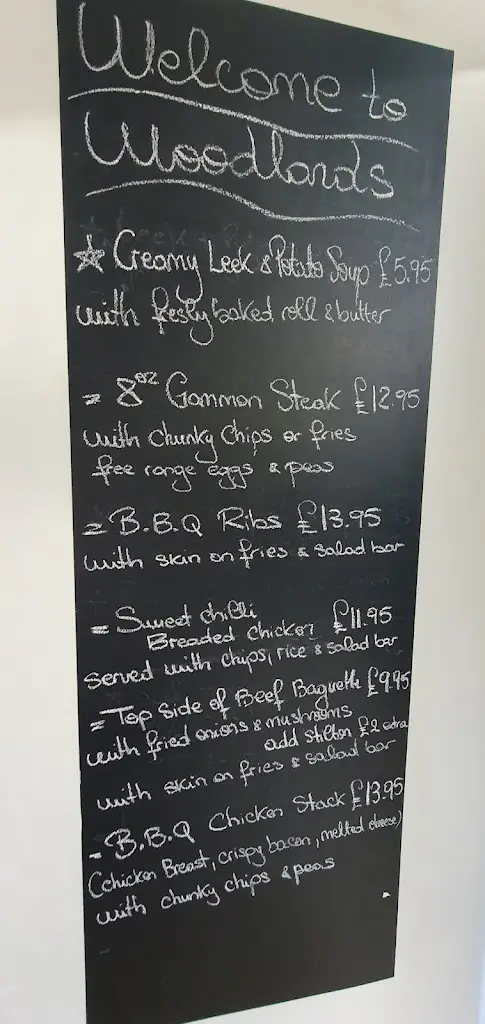 Welcome to
Woodlands
☆ Creamy Leek & Potato Soup £5.95
with freslybaked roll & butter
= 8oz Gammon Steak £12.95
with chunky chips or fries
free range eggs & peas
= B.B.Q Ribs £13.95
with skin on fries & salad bar
= Sweet chilli
Breaded Chicken £11.95
Served with chips, rice & salad bar
= Top Side of Beef Baguette £9.95
with fried onions & mushrooms
add stilton £2 extra
with skin on fries & salad bar
- B.B.Q Chicken Stack £13.95
(chicken Breast, crispy bacon, melted cheese)
with chunky chips & peas